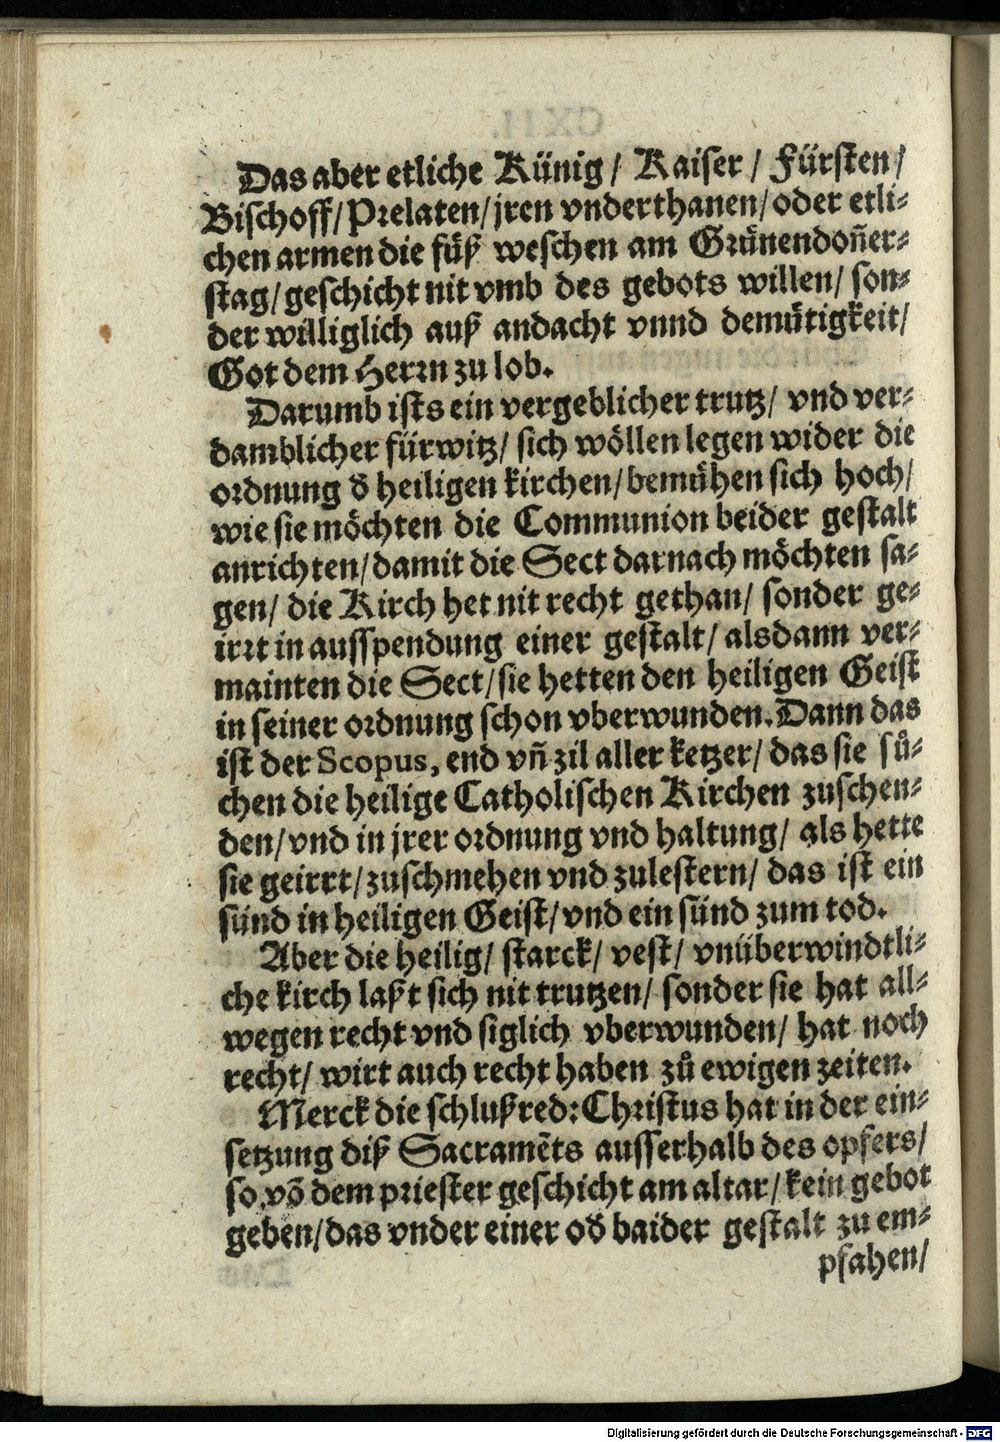 Das aber etliche Künig/ Kaiser/ Fürsten/
Bischoff/Prelaten/jren vnderthanen/oder etli⸗
chen armen die füß weschen am Grünendoñer⸗
stag/geschicht nit vmb des gebots willen/ son⸗
der williglich auß andacht vnnd demütigkeit/
Got dem Herrn zu lob.
Darumb ists ein vergeblicher trutz/ vnd ver⸗
damblicher fürwitz/ sich wöllen legen wider die
ordnung ď heiligen kirchen/bemühen sich hoch/
wie sie möchten die Communion beider gestalt
anrichten/damit die Sect darnach möchten sa⸗
gen/ die Kirch het nit recht gethan/ sonder ge⸗
irrt in ausspendung einer gestalt/ alsdann ver⸗
mainten die Sect/sie hetten den heiligen Geist
in seiner ordnung schon vberwunden. Dann das
ist der Scopus, end vñ zil aller ketzer/ das sie sů⸗
chen die heilige Catholischen Kirchen zuschen⸗
den/vnd in jrer ordnung vnd haltung/ als hette
sie geirrt/zuschmehen vnd zulestern/ das ist ein
sünd in heiligen Geist/vnd ein sünd zum tod.
Aber die heilig/ starck/ vest/ vnüberwindtli⸗
che kirch laßt sich nit trutzen/ sonder sie hat all⸗
wegen recht vnd siglich vberwunden/ hat noch
recht/ wirt auch recht haben zů ewigen zeiten.
Merck die schlußred: Christus hat in der ein⸗
setzung diß Sacramēts ausserhalb des opfers/
so võ dem priester geschicht am altar/ kein gebot
geben/das vnder einer oď baider gestalt zu em⸗
pfahen/
Digitalisierung gefördert durch die Deutsche Forschungsgemeinschaft - DFG